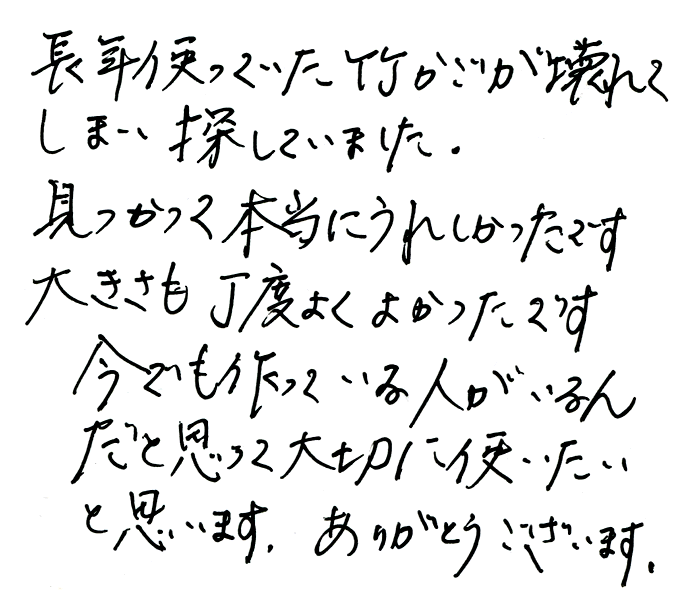 長年使っていた竹かごが壊れて
しまい探していました.
見つかって本当にうれしかったです
大きさも丁度よくよかったです
今でも作っている人がいるん
だと思って大切に使いたい
と思います. ありがとうございます.